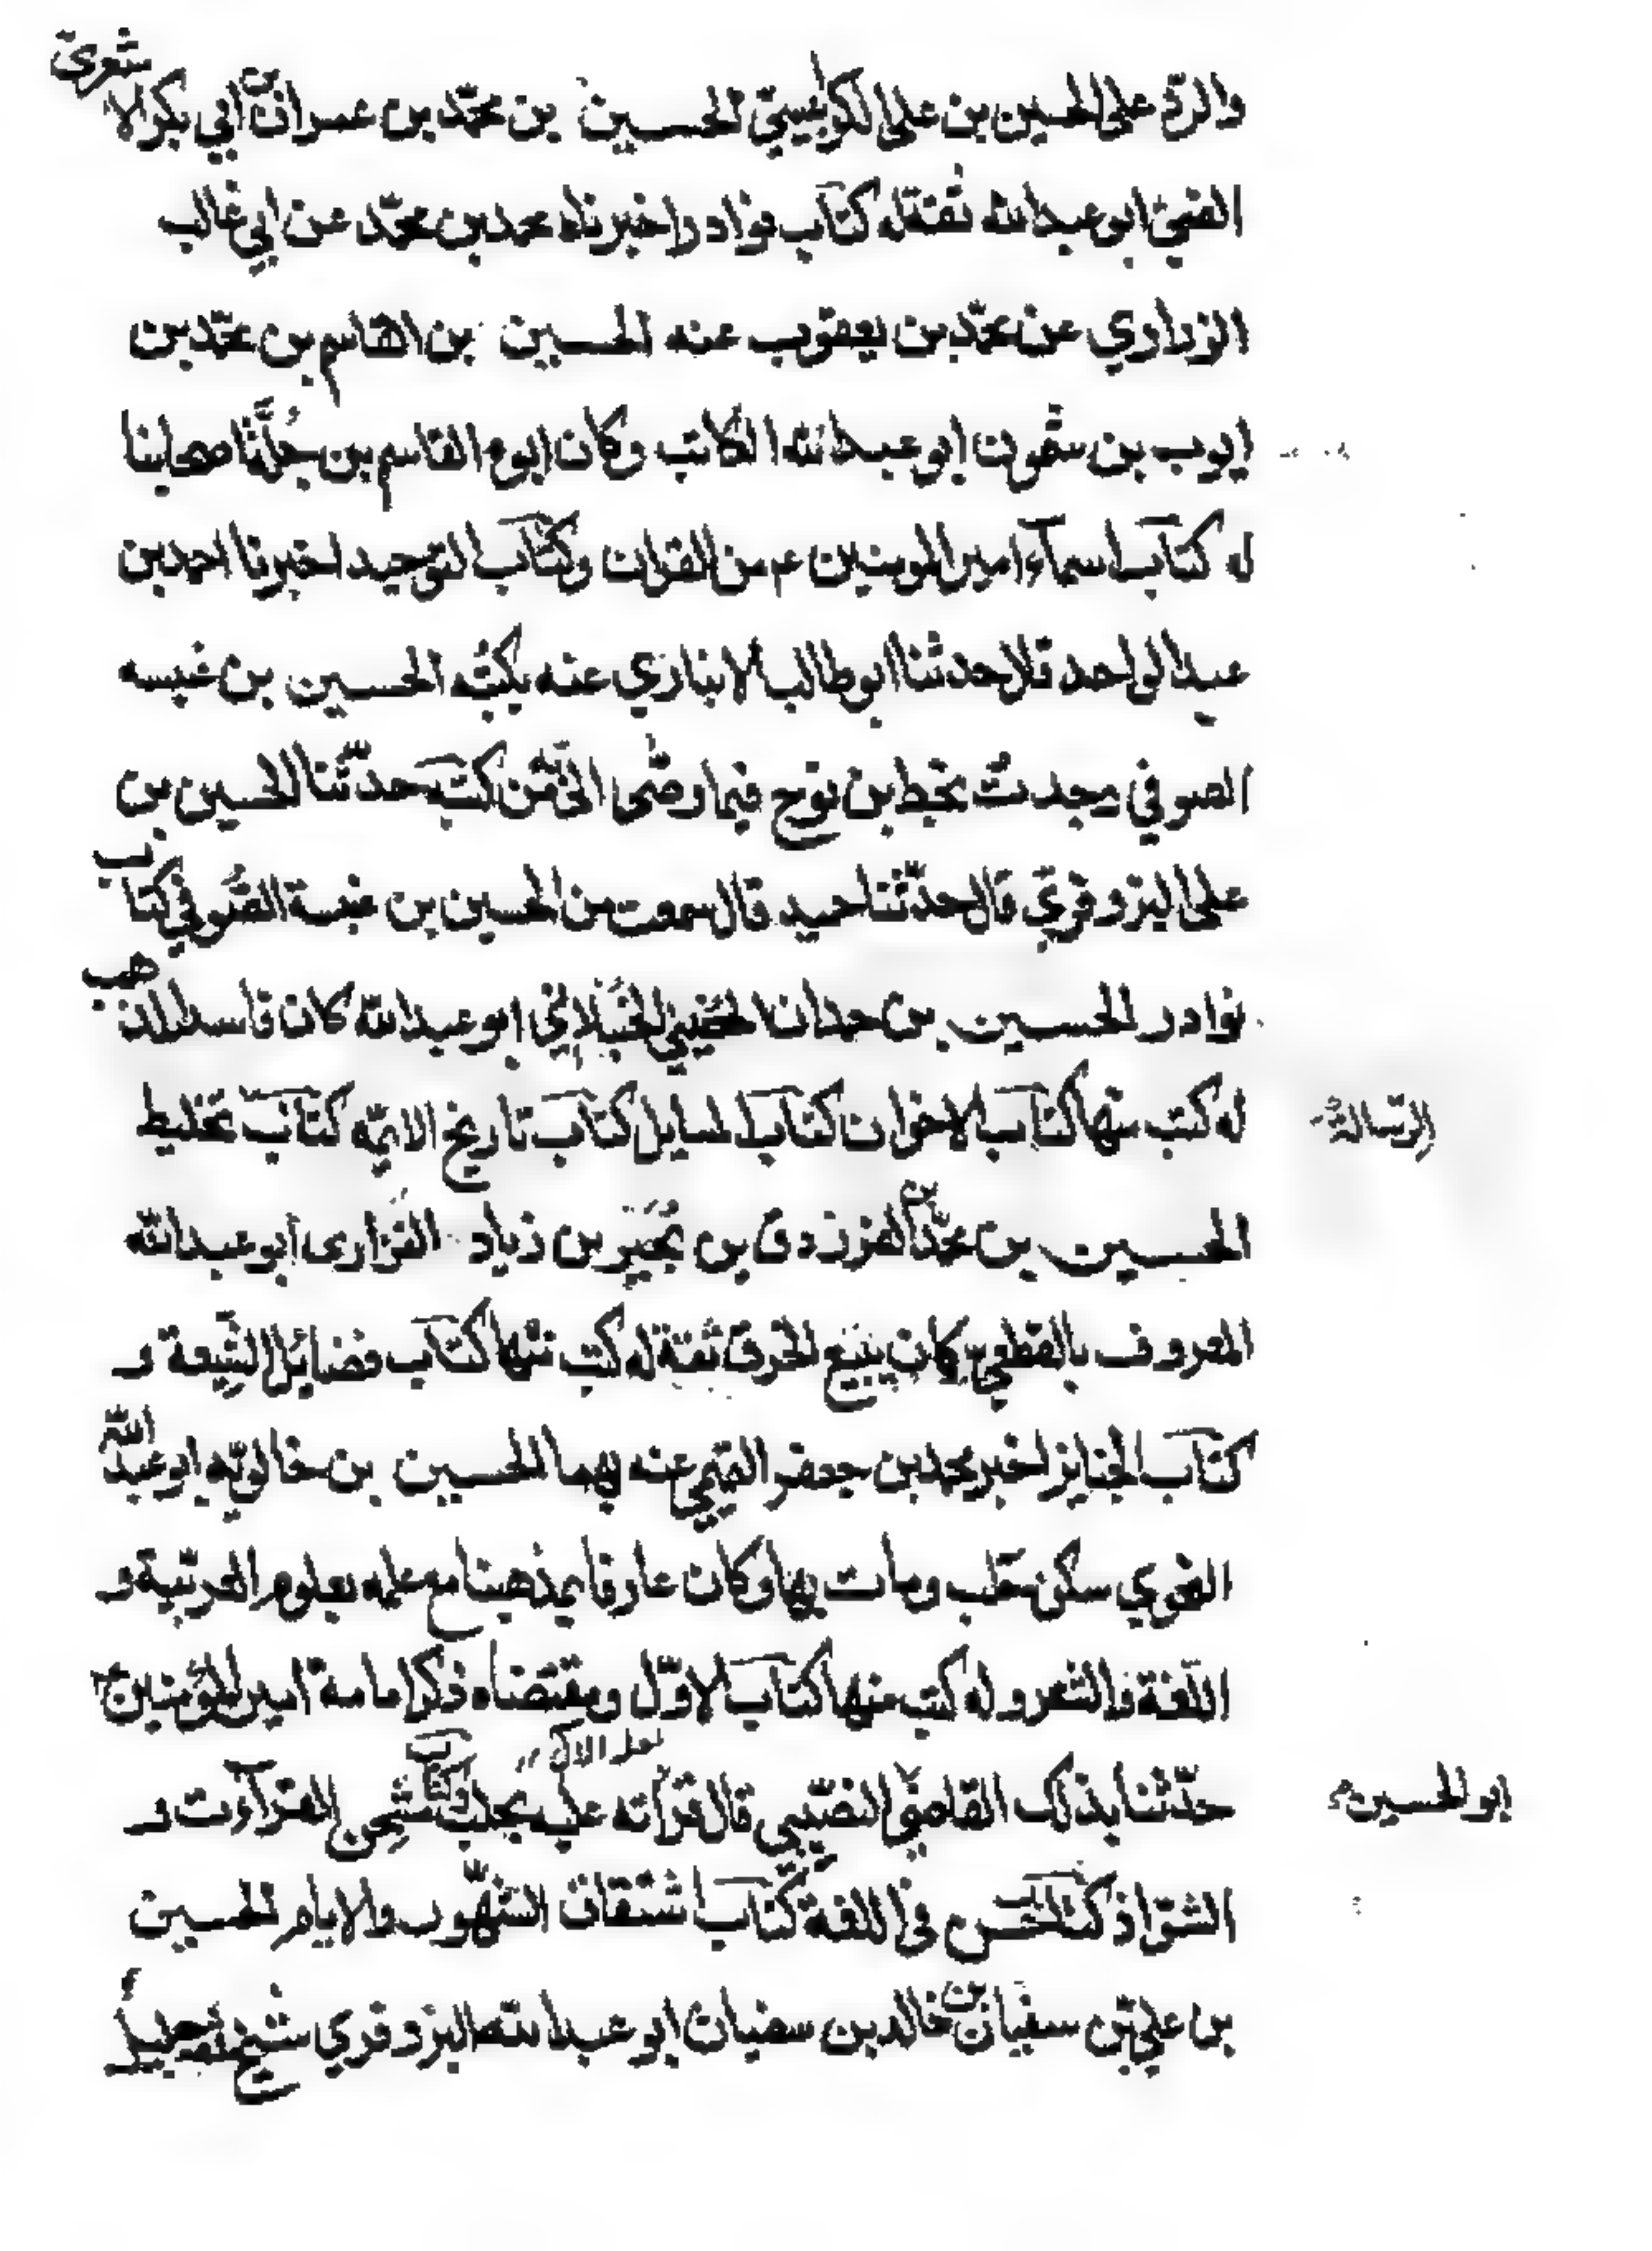 والرد على الحسين بن علي الكرابيسي الحسين بن محمد بن عمران بن أبي بكر الاشعري
القمي ابو عبد الله ثقة له كتاب نوادر اخبرناه محمد بن محمد عن ابي غالب
الزراري عن محمد بن يعقوب عنه الحسين بن القاسم بن محمد بن
ايوب بن شمون ابو عبد الله الكاتب وكان ابوه القاسم من جلة اصحابنا
له كتاب اسمآء امير المومنين ع من القران وكتاب التوحيد اخبرنا احمد بن
عبد الواحد قال حدثنا ابو طالب الانباري عنه بكتبه الحسين بن عنبسه
الصوفي وجدت بخط بن نوح فيما وصى الي من كتبه حدثنا الحسين بن
علي البزوفري قال حدثنا حميد قال سمعت من الحسين بن عنبسة الصوفي كتاب
نوادر الحسين بن حمدان الخصيبي الجنبلاني ابو عبد الله كان فاسد المذهب
له كتب منها كتاب الاخوان كتاب المسايل كتاب تاريخ الايمه كتاب تخليط
الرسالة
الحسين بن محمد بن الفرزدق بن بجير بن زياد الفزارى ابو عبد الله
المعروف بالقطعي كان يبيع الخرق ثقة له كتب منها كتاب فضائل الشيعة و
كتاب الجنايز اخبر محمد بن جعفر التميمي عنه بهما الحسين بن خالويه ابو عبد الله
النحوي سكن حلب ومات بها وكان عارفا بمذهبنا مع علمه بعلوم العربية و
اللغة والشعر وله كتب منها كتاب الاول ومقتضاه ذكر امامة امير المؤمنين ع
لعله الآل
حدثنا بذلك القاضي النصيبي قال قراته عليه بحلب كتاب مستحسن القرآءت و
ابو الحسين
الشواذ كتاب حسن في اللغة كتاب اشتقاق الشهور والايام الحسين
بن علي بن سفيان بن خالد بن سفيان ابو عبد الله البزوفري شيخ ثقة جليل